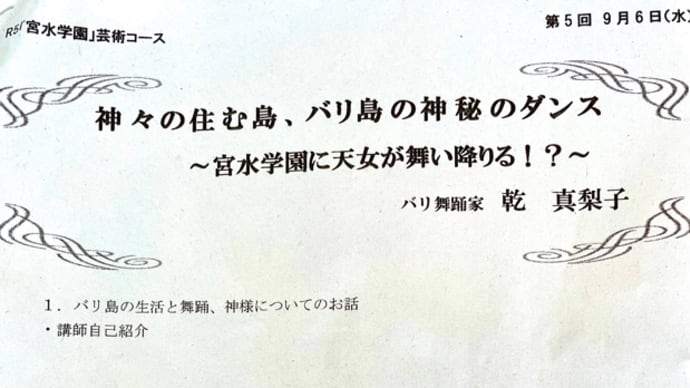 R5「宮水学園」芸術コース
第5回 9月6日(水)
神々の住む島、バリ島の神秘のダンス
～宮水学園に天女が舞い降りる！？～
バリ舞踊家 乾 真梨子
1．バリ島の生活と舞踊、神様についてのお話
・講師自己紹介